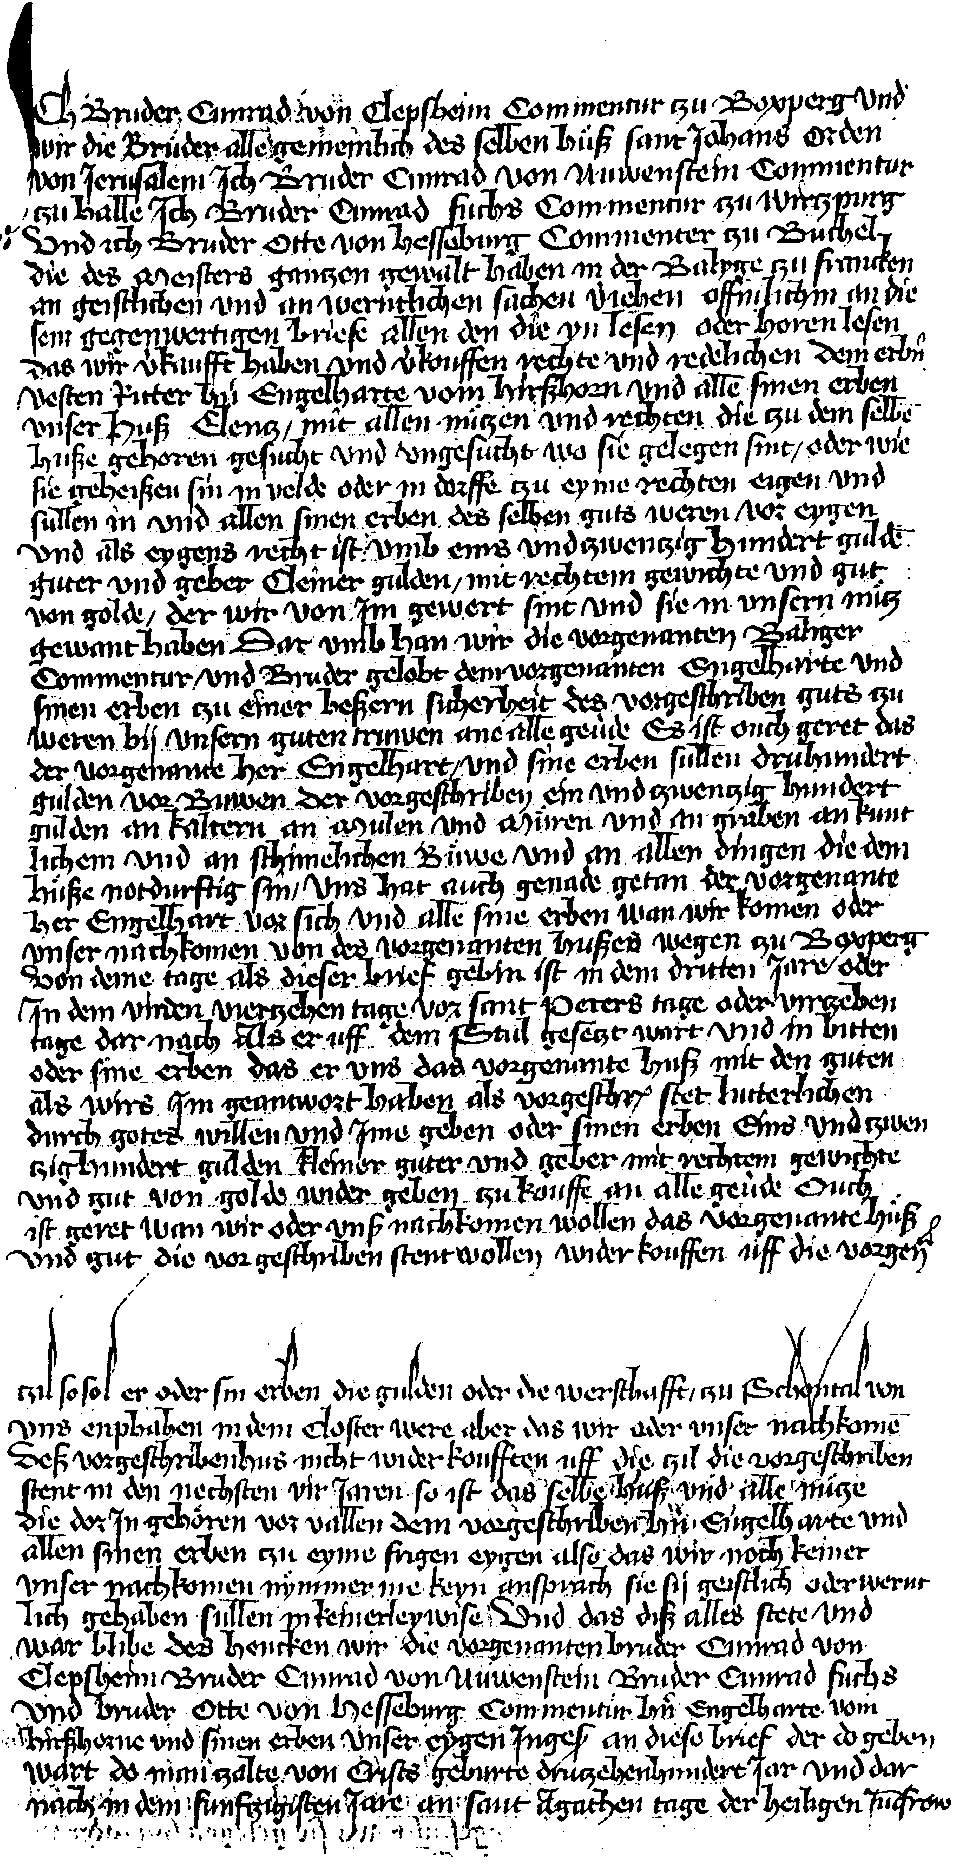 Ich Bruder Cunrad von Clepsheim Commentur tzu Boxperg und
wir die Bruder alle gemeinlich des selben huß sant Johans Orden
von Jerusalem Ich Bruder Cunrad von Nuwenstein Commentur
tzu halle Ich Bruder Cunrad fuchs Commentur tzu Wirtzpurg
Und ich Bruder Otte von hesseburg Commenter tzu Buchel
die des Meisters gantzen gewalt haben in der Balyge tzu francken
an geistlichen und an werntlichen sachen viehen offinlichin an die
sem gegenwertigen briefe allen den die yn lesen oder horen lesen
das wir vkaufft haben und vkouffen rechte und redelichen dem erbn
vesten Ritter hn Engelharte vom hirßhorn und alle sinen erben
unser huß Clentz/ mit allen nutzen und rechten die tzu dem selbe
huße gehoren gesucht und ungesucht wo sie gelegen sint/ oder wie
sie geheißen sin in velde oder in dorffe tzu eyme rechten eigen und
sullen in und allen sinen erben des selben guts weren vor eygen
und als eygens recht ist umb eins und zwentzig hundert gulde
guter und geber Cleiner gulden/ mit rechtem gewichte und gut
von golde/ der wir von Im gewert sint und sie in unsern nutz
gewant haben Dar umb han wir die vorgenanten Baliger
Commentur/ und Bruder gelobt dem vorgenanten Engelharte und
sinen erben tzu einer beßern sicherheit des vorgeschriben guts tzu
weren bij unsern guten truwen ane alle geude Es ist ouch geret das
der vorgenante her Engelhart/ und sine erben sullen druhundert
gulden vor Buwen der vorgeschriben ein und zwentzig hundert
gulden an kaltern an Mulen und Muren und an graben an kunt
lichem und an schinelichen Buwe und an allen dingen die dem
huße notdurftig sin/ uns hat auch genade getan der vorgenante
her Engelhart vor sich und alle sine erben wan wir komen oder
unser nachkomen von des vorgenanten hußes wegen tzu Boxperg
von deme tage als dieser brief gebin ist in dem dritten Jare/ oder
In dem virden viertzehen tage vor sant Peters tage oder virzehen
tage dar nach Als er uff dem Stul gesetzt wart und in bitten
oder sine erben das er uns das vorgenante huß mit den guten
als wirs Im geantwort haben als vorgeschr stet lutterlichen
durch gotes willen und Ime geben oder sinen erben Eins und zwen
tzig hundert gulden kleiner guter und geber mit rechtem gewichte
und gut von golde wider geben tzu kouffe an alle geude Ouch
ist geret wan wir oder unß nachkomen wollen das vorgenante huß
und gut die vor geschriben stent wollen wider kouffen uff die vorgen
tzil so sol er oder sin erben die gulden oder die werschafft/ tzu Schontal von
uns enphahen in dem Closter were aber das wir oder unser nachkome
deß vorgeschriben hus nicht wider koufften uff die tzil die vorgeschriben
stent in den nechsten vir Jaren so ist das selbe huß und alle nutze
die dor In gehoren vor vallen dem vorgeschriben hn Engelharte und
allen sinen erben tzu eyme frigen eygen also das wir noch keiner
unser nachkomen nymmer me keyn ansprach sie sij geistlich oder wernt
lich gehaben sullen in keinerley wise Und das diß alles stete und
war blibe des hencken wir die vorgenanten bruder Cunrad von
Clepsheim Bruder Cunrad von Nuwenstein Bruder Cunrad fuchs
und bruder Otte von hesseburg Commentur hn Engelharte vom
hirßhorne und sinen erben unser eygen Inges an diese brief der do geben
wart do man tzalte von Crists geburte drutzehenhundert Jar und dar
nach in dem funftzigisten Jare an sant Agathen tage der heiligen Jucfrow